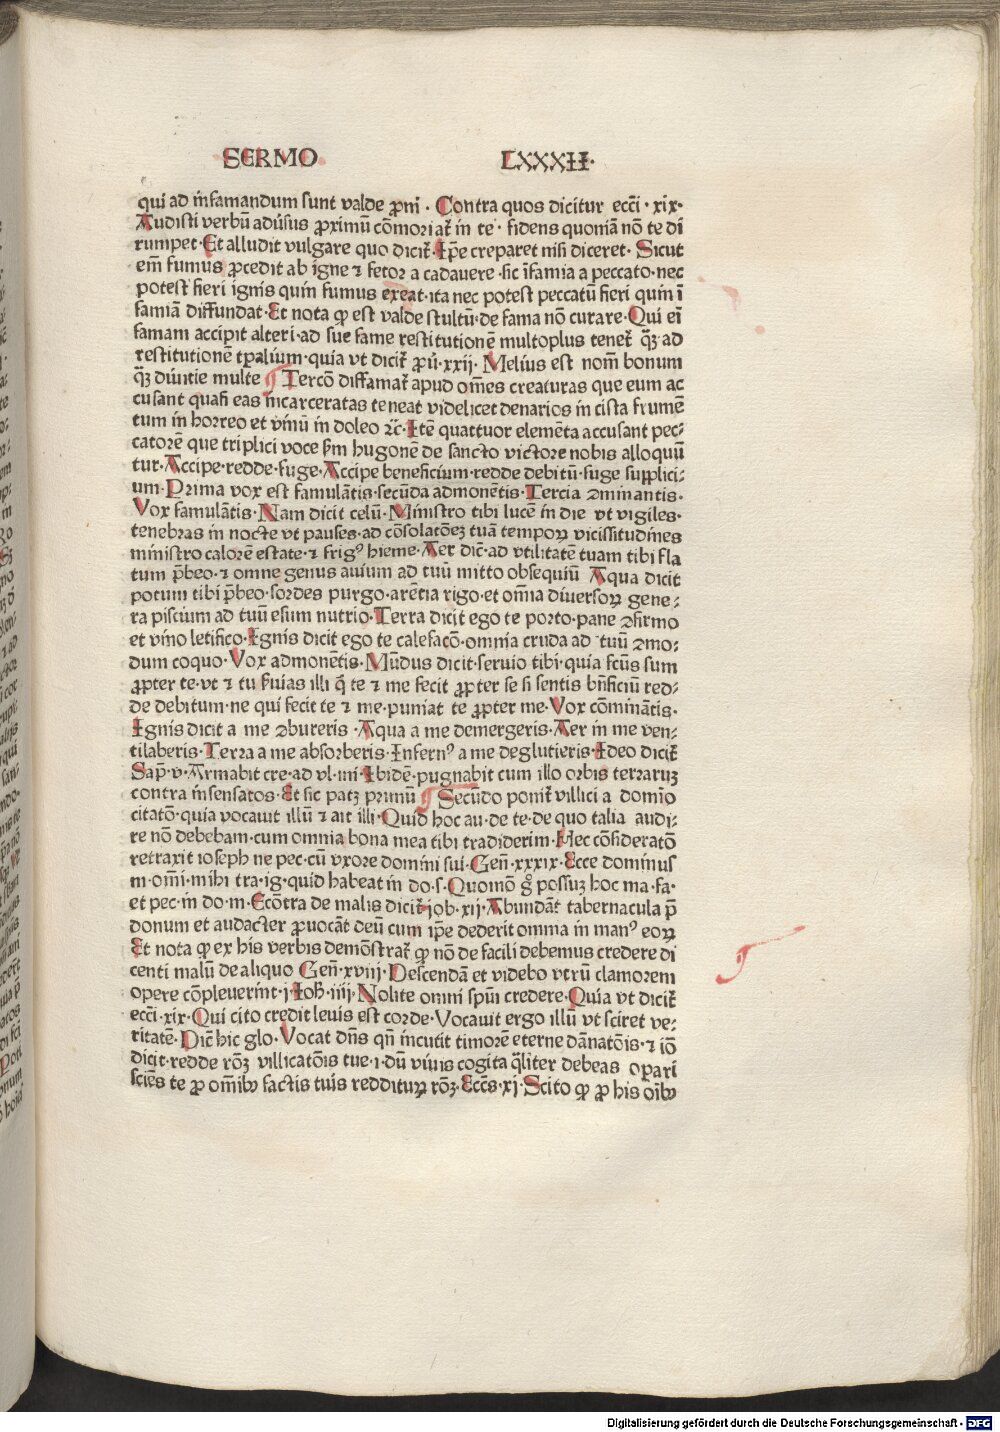 SERMO LXXXII·
qui ad infamandum sunt valde ꝓni · Contra quos dicitur ecci̅ · xix·
Audisti verbu̅ adu̓sus ꝓximu̅ co̅moriat᷑ in te · fidens quonia̅ no̅ te di
rumpet · Et alludit vulgare quo dicit᷑ · Ip̅e creparet nisi diceret · Sicut
em̅ fumus ꝓcedit ab igne ⁊ fetor a cadauere · sic i̅famia a peccato · nec
potest fieri ignis quin fumus exeat · ita nec potest peccatu̅ fieri quin i̅
famia̅ diffundat · Et nota ꝙ est valde stultu̅ · de fama no̅ curare · Qui ei̅
famam accipit alteri · ad sue fame restitutione̅ multoplus tenet᷑ q̅ꝫ ad
restitutione̅ tp̅alium · quia vt dicit᷑ ꝓu̓ · xxij · Melius est nom̅ bonum
q̅ꝫ diuitie multe ¶ Terco̅ diffamat᷑ apud om̅es creaturas que eum ac
cusant quasi eas incarceratas teneat videlicet denarios in cista frume̅
tum in horreo et vinu̅ in doleo ⁊c̅ · Ite̅ quattuor eleme̅ta accusant pec⸗
catore̅ que triplici voce ẜm hugone̅ de sancto victore nobis alloquu̅
tur · Accipe · redde · fuge · Accipe beneficium · redde debitu̅ · fuge supplici⸗
um · Prima vox est famula̅tis · secu̅da admone̅tis · Tercia ꝯminantis ·
Vox famula̅tis · Nam dicit celu̅ · Ministro tibi luce̅ in die vt vigiles ·
tenebras in nocte vt pauses · ad co̅solato̅eꝫ tua̅ tempoꝝ vicissitudines
ministro calore̅ estate · ⁊ frigꝰ hieme · Aer dic̅ · ad vtilitate̅ tuam tibi fla
tum p̅beo · ⁊ omne genus auium ad tuu̅ mitto obsequiu̅ Aqua dicit
potum tibi p̅beo · sordes purgo · are̅tia rigo · et om̅ia diuersoꝝ gene⸗
ra piscium ad tuu̅ esum nutrio · Terra dicit ego te porto · pane ꝯfirmo
et vino letifico · Ignis dicit ego te calefaco̅ · omnia cruda ad tuu̅ ꝯmo⸗
dum coquo · Vox admone̅tis · Mu̅dus dicit · seruio tibi · quia fc̅us sum
ꝓpter te · vt ⁊ tu ẜuias illi q̅ te ⁊ me fecit ꝓpter se si sentis bn̅ficiu̅ red⸗
de debitum · ne qui fecit te ⁊ me · puniat te ꝓpter me · Vox co̅mina̅tis ·
Ignis dicit a me ꝯbureris · Aqua a me demergeris · Aer in me ven⸗
tilaberis · Terra a me absorberis · Infernꝰ a me deglutieris · Ideo dicit᷑
Sap̅ · v · Armabit cre · ad vl · ini · Ibide̅ · pugnabit cum illo orbis terraruꝫ
contra insensatos · Et sic patꝫ primu̅ ¶ Secu̅do ponit᷑ villici a domi̅o
citato̅ · quia vocauit illu̅ ⁊ ait illi · Quid hoc au · de te · de quo talia audi⸗
re no̅ debebam · cum omnia bona mea tibi tradiderim · Hec co̅siderato̅
retraxit ioseph ne pec · cu̅ vxore domini sui · Gen̅ · xxxix · Ecce dominus
m · om̅i · mihi tra · ig · quid habeat in do · s · Quomo̅ g̊ possuꝫ hoc ma · fa ·
et pec · in do · m · Eco̅tra de malis dicit᷑ · iob · xij · Abunda̅t tabernacula p̅
donum et audacter ꝓuoca̅t deu̅ cum ip̅e dederit omnia in manꝰ eoꝝ
Et nota ꝙ ex his verbis demo̅strat᷑ ꝙ no̅ de facili debemus credere di
centi malu̅ de aliquo Gen̅ · xviij · Descenda̅ et videbo vtru̅ clamorem
opere co̅pleuerint · j · Ioh̅ · iiij · Nolite omni sp̅ui credere · Quia vt dicit᷑
ecci̅ · xix · Qui cito credit leuis est corde · Vocauit ergo illu̅ vt sciret ve⸗
ritate̅ · Dic̅ hic glo · Vocat dn̅s qn̅ incutit timore̅ eterne da̅nato̅is · ⁊ io̅
dicit · redde ro̅ꝫ villicato̅is tue · i · du̅ viuis cogita q̅liter debeas oꝑari
scie̅s te ꝓ om̅ibꝰ factis tuis redditurꝝ ro̅ꝫ · Ecc̅s · xj · Scito ꝙ ꝓ his oi̅bꝰ
Digitalisierung gefördert durch die Deutsche Forschungsgemeinschaft · DFG